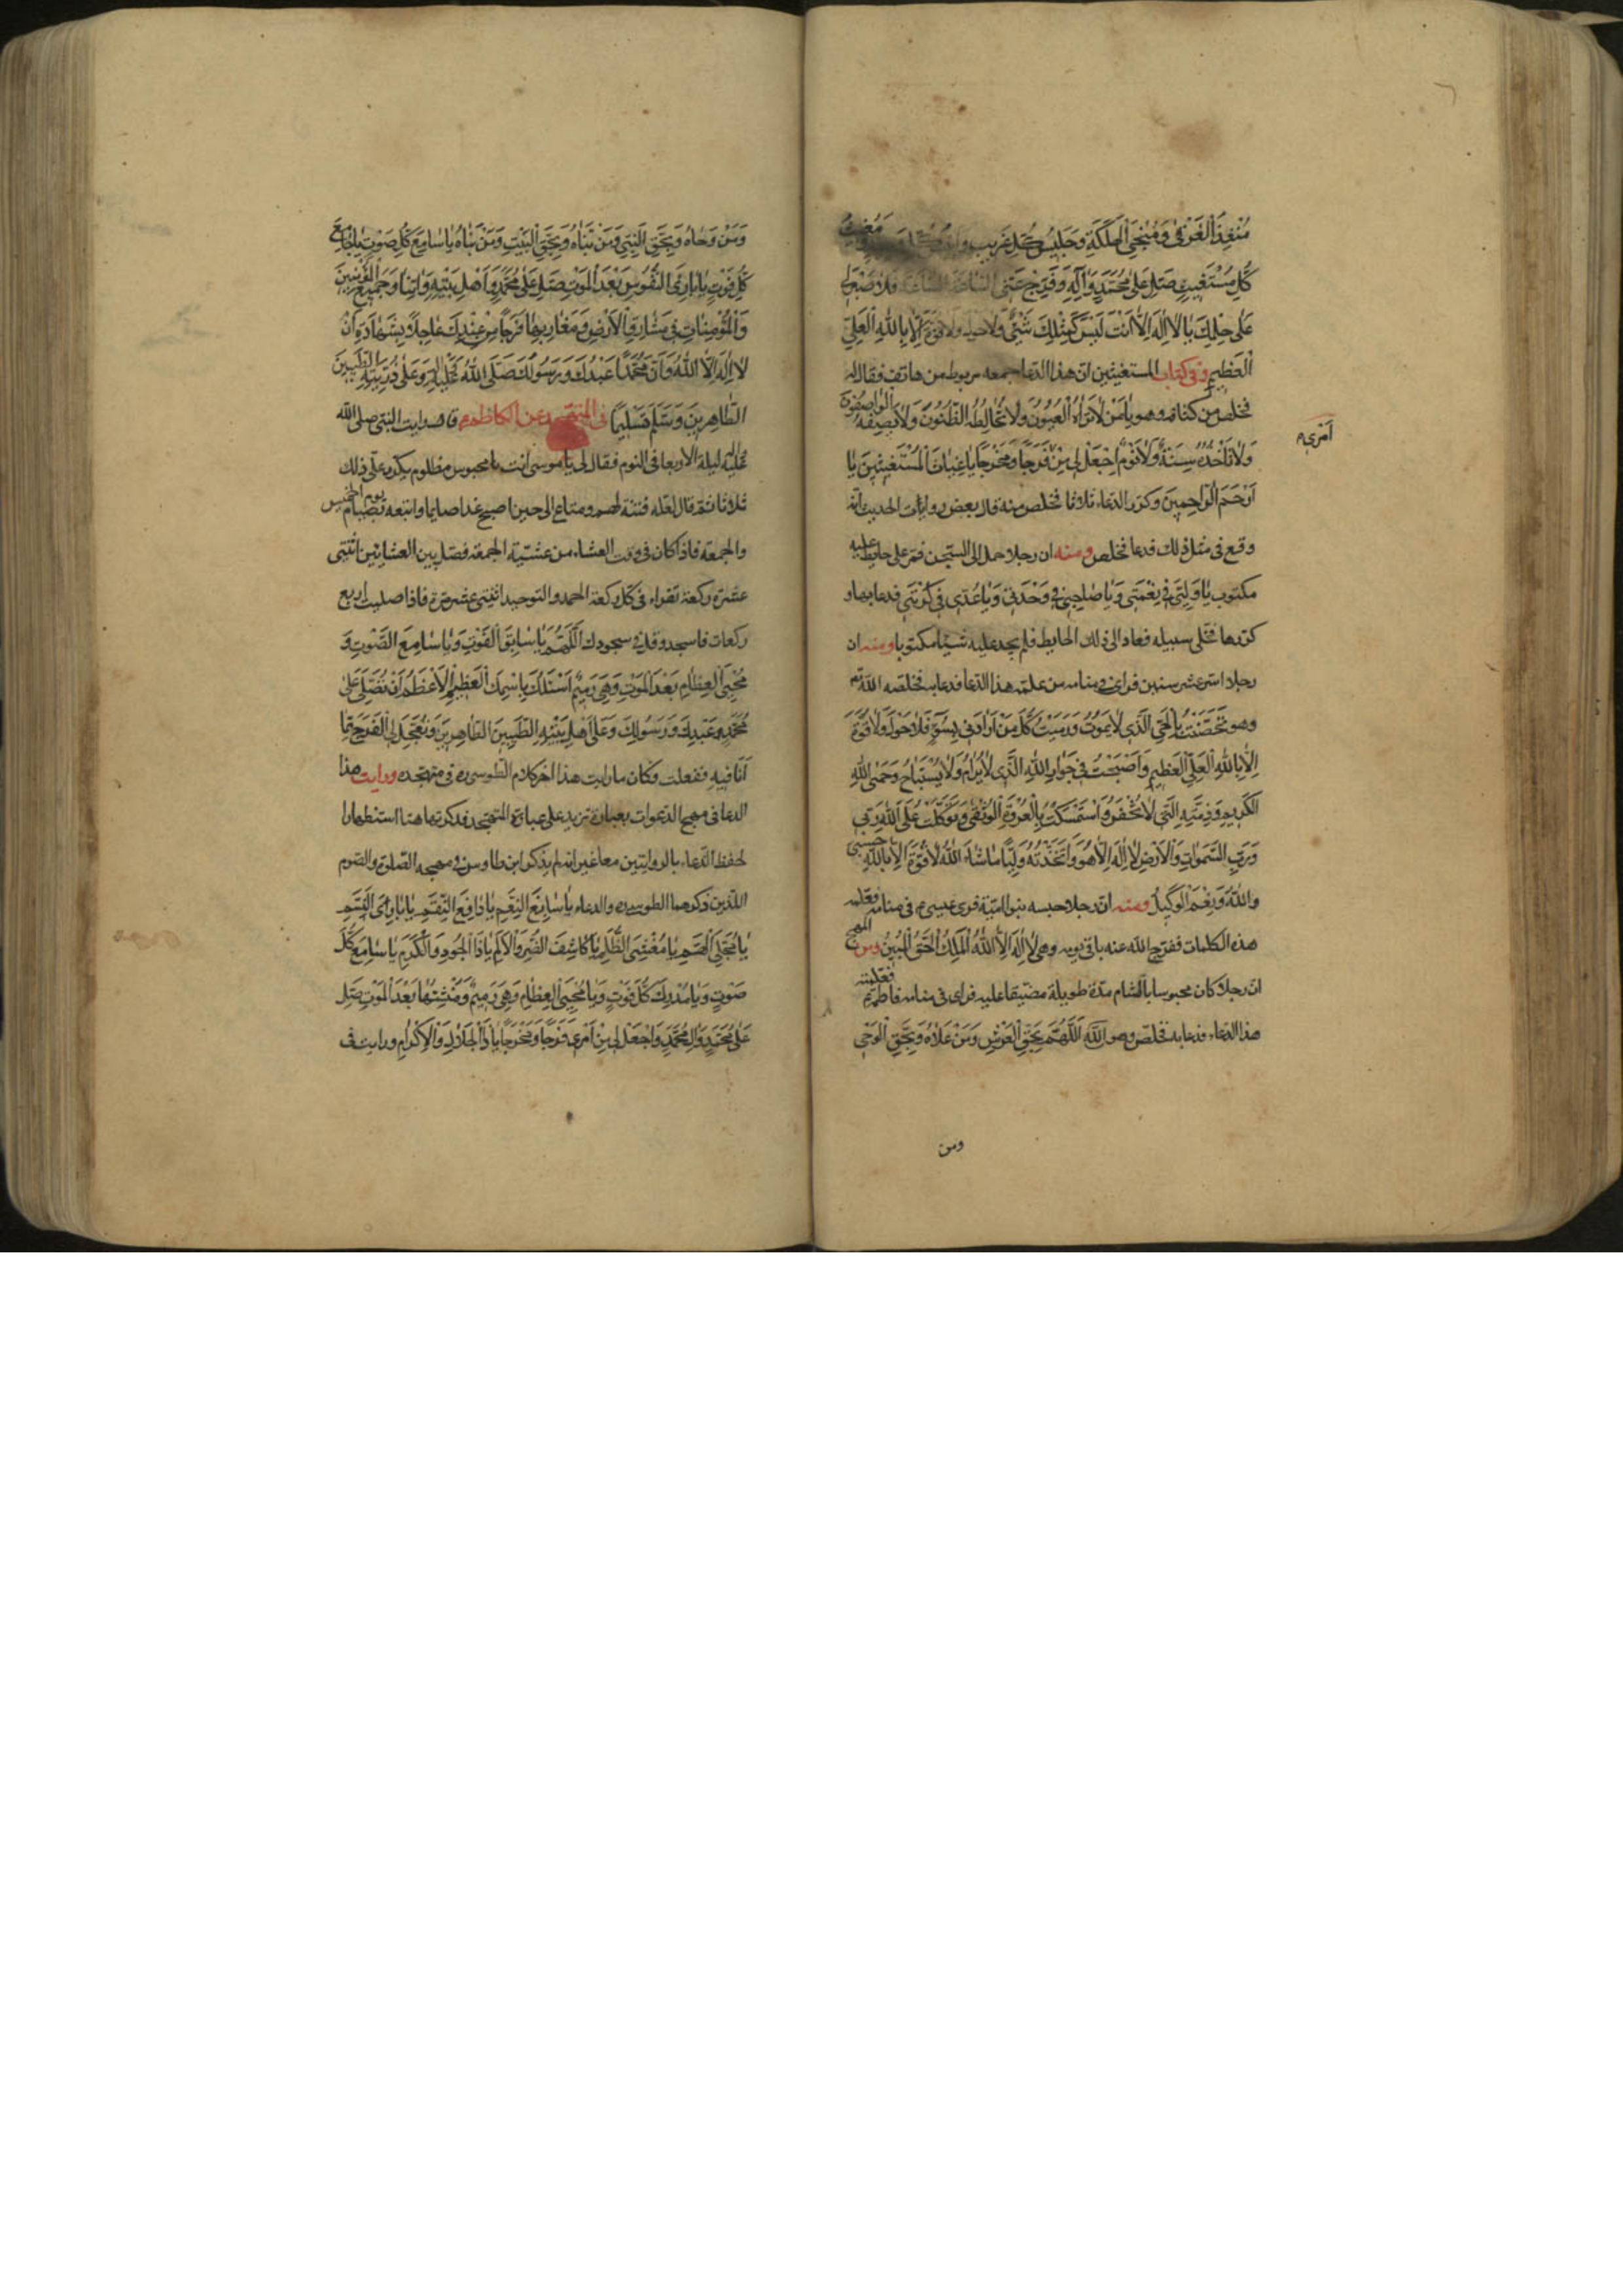 مُنْقِذَ الْغَرْقىٰ وَمُنْجِيَ الْهَلْكىٰ وَجَلِيسَ كُلِّ غَرِيبٍ وَمُغِيثَ
كُلِّ مُسْتَغِيثٍ صَلِّ عَلىٰ مُحَمَّدٍ وَآلِهِ وَفَرِّجْ عَنِّي السّاعَةَ السّاعَةَ فَلا صَبْرَ لي
عَلىٰ حِلْمِكَ يا لا اِلهَ اِلاّ اَنْتَ لَيْسَ كَمِثْلِكَ شَيْءٌ وَلا حَوْلَ وَلا قُوَّةَ اِلاّ بِاللهِ الْعَلِيِّ
الْعَظِيمِ وفي كتاب المستغيثين ان هذا الدعا سمعه مربوط من هاتف فقاله
فخلص من كتافه وهو يا مَنْ لا تَراهُ الْعُيُونُ وَلا تُخالِطُهُ الظُّنُونُ وَلا يَصِفُهُ الْواصِفُونَ
وَلا تَأْخُذُهُ سِنَةٌ وَلا نَوْمٌ اِجْعَلْ لي مِنْ فَرَجاً وَمَخْرَجاً يا غِياثَ الْمُسْتَغِيثِينَ يا
اَمْري
اَرْحَمَ الرّاحِمِينَ وكرر الدعاء ثلاثا فخلص منه قال بعض روايات الحديث انه
وقع في مثل ذلك فدعا فخلص ومنه ان رجلا حمل الى السجن فمر على حايط عليه
مكتوب يا وَلِيّي في نِعْمَتي وَيا صاحِبي في وَحْدَتي وَيا عُدَّتي في كُرْبَتي فدعا بها و
كررها فخلى سبيله فعاد الى ذلك الحايط فلم يجد عليه شيئا مكتوبا ومنه ان
رجلا اسر عشر سنين فراى في منامه من علمه هذا الدعا فدعا به فخلصه الله تع
وهو تَحَصَّنْتُ بِالْحَيِّ الَّذي لا يَمُوتُ وَرَمَيْتُ كُلَّ مَنْ اَرادَني بِسُوءٍ فَلا حَوْلَ وَلا قُوَّةَ
اِلاّ بِاللهِ الْعَلِيِّ الْعَظِيمِ وَاَصْبَحْتُ في جِوارِ اللهِ الَّذي لا يُرامُ وَلا يُسْتَباحُ وَحِمَى اللهِ
الْكَرِيمِ وَذِمَّتِهِ الَّتي لا تُخْفَرُ وَاسْتَمْسَكْتُ بِالْعُرْوَةِ الْوُثْقىٰ وَتَوَكَّلْتُ عَلَى اللهِ رَبّي
وَرَبِّ السَّمواتِ وَالْاَرْضِ لا اِلهَ اِلاّ هُوَ وَاتَّخَذْتُهُ وَلِيّاً ما شاءَ اللهُ لا قُوَّةَ اِلاّ بِاللهِ حَسْبِيَ
وَاللهُ وَنِعْمَ الْوَكِيلُ ومنه ان رجلا حبسه بنو امية فرى عيسى ع في منامه فعلمه
هذه الكلمات ففرج الله عنه باقي يومه وهي لا اِلهَ اِلاَّ اللهُ الْمَلِكُ الْحَقُّ الْمُبِينُ ومن المهج
ان رجلا كان محبوسا بالشام مدة طويلة مضيقا عليه فراى في منامه فاطمة ع فعلمته
هذا الدعاء فدعا به فخلص وهو اَللّهُمَّ بِحَقِّ الْعَرْشِ وَمَنْ عَلاهُ وَبِحَقِّ الْوَحْيِ
ومن
وَمَنْ وَحاهُ وَبِحَقِّ النَّبِيِّ وَمَنْ نَبَّاهُ وَبِحَقِّ الْبَيْتِ وَمَنْ بَناهُ يا سامِعَ كُلِّ صَوْتٍ يا جامِعَ
كُلِّ فَوْتٍ يا بارِئَ النُّفُوسِ بَعْدَ الْمَوْتِ صَلِّ عَلىٰ مُحَمَّدٍ وَاَهْلِ بَيْتِهِ وَاٰتِنا وَجَمِيعَ الْمُؤْمِنِينَ
وَالْمُؤْمِناتِ في مَشارِقِ الْاَرْضِ وَمَغارِبِها فَرَجاً مِنْ عِنْدِكَ عاجِلاً بِشَهادَةِ اَنْ
لا اِلهَ اِلاَّ اللهُ وَاَنَّ مُحَمَّداً عَبْدُكَ وَرَسُولُكَ صَلَّى اللهُ عَلَيْهِ وَعَلىٰ ذُرِّيَّتِهِ الطَّيِّبِينَ
الطّاهِرِينَ وَسَلَّمَ تَسْلِيماً في المتهجد عن الكاظم ع قال رايت النبي صلى الله
عليه ليلة الاربعا في النوم فقال لي يا موسى انت يا محبوس مظلوم يكرر علي ذلك
ثلاثا ثم قال لعله فتنة لهم ومتاع الى حين اصبح غدا صايما واتبعه بصيام يوم الخميس
والجمعة فاذا كان في وقت العشاء من عشية الجمعة فصل بين العشائين اثنتي
عشرة ركعة تقراء في كل ركعة الحمد والتوحيد اثنتي عشر مرة فاذا صليت اربع
ركعات فاسجد وقل في سجودك اَللّهُمَّ يا سابِقَ الْفَوْتِ وَيا سامِعَ الصَّوْتِ وَ
مُحْيِيَ الْعِظامِ بَعْدَ الْمَوْتِ وَهِيَ رَمِيمٌ اَسْئَلُكَ بِاسْمِكَ الْعَظِيمِ الْاَعْظَمِ اَنْ تُصَلِّيَ عَلىٰ
مُحَمَّدٍ عَبْدِكَ وَرَسُولِكَ وَعَلىٰ اَهْلِ بَيْتِهِ الطَّيِّبِينَ الطّاهِرِينَ وَتُعَجِّلَ لِيَ الْفَرَجَ مِمّا
اَنَا فِيهِ ففعلت فكان ما رايت هذا اخر كلام الطوسي ره في متهجده ورايت هذا
الدعا في مهج الدعوات بعبارة تزيد على عبارة المتهجد فذكرتها هنا استظهارا
لحفظ الدعاء بالروايتين معا غير انه لم يذكر ابن طاوس في مهجه الصلوة والصوم
اللذين ذكرهما الطوسي ره والدعاء يا سابِغَ النِّعَمِ يا دافِعَ النِّقَمِ يا بارِئَ النَّسَمِ
يا مُجَلِّيَ الْهَمِّ يا مُغْشِيَ الظُّلَمِ يا كاشِفَ الضُّرِّ وَالْاَلَمِ يا ذَا الْجُودِ وَالْكَرَمِ يا سامِعَ كُلِّ
صَوْتٍ وَيا مُدْرِكَ كُلِّ فَوْتٍ وَيا مُحْيِيَ الْعِظامِ وَهِيَ رَمِيمٌ وَمُنْشِئَها بَعْدَ الْمَوْتِ صَلِّ
عَلىٰ مُحَمَّدٍ وَالِ مُحَمَّدٍ وَاجْعَلْ لي مِنْ اَمْري فَرَجاً وَمَخْرَجاً يا ذَا الْجَلالِ وَالْاِكْرامِ ورايت في